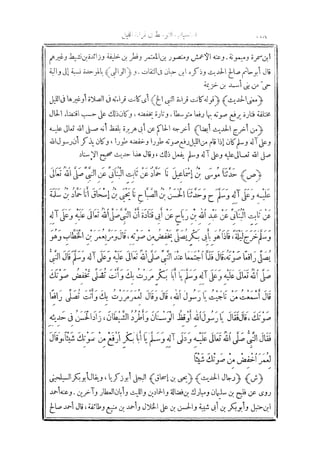 ابن سمرة وميمونة. وعنه الأعمش ومنصور بن المعتمر وفطر بن خليفة وزائدة بن نشيط وغيرهم
قال أبو حاتم صالح الحديث وذكره ابن حبان فى الثقات. و(الوالبى) بالموحدة نسبة إلى والبة
حى من بنى أسد بن خزيمة
(معنى الحديث) (قوله كانت قراءة النبى الخ) أى كانت قراءته فى الصلاة أو غيرها فى الليل
مختلفة فتارة يرفع صوته بها رفعا متوسطا. وتارة يخفضه. وكان ذلك على حسب اقتضاء الحال
(من أخرج الحديث أيضا) أخرجه الحاكم عن أبى هريرة بلفظ أنه صلى الله تعالى عليه
وعلى آله وسلم كان إذا قام من الليل رفع صوته طورا وخفضه طورا. وكان يذكر أن رسول الله
صلى الله تعالى عليه وعلى آله وسلم يفعل ذلك. وقال هذا حديث صحيح الإسناد
(ص) حَدَّثَنَا مُوسَى بْنُ إِسْمَاعِيلَ نَا حَمَّادٌ عَنْ ثَابِتٍ الْبُنَانِيِّ عَنِ النَّبِيِّ صَلَّى اللهُ تَعَالَى
عَلَيْهِ وَعَلَى آلِهِ وَسَلَّمَ ح وَحَدَّثَنَا الْحَسَنُ بْنُ الصَّبَّاحِ نَا يَحْيَى بْنُ إِسْحَاقَ أَنَا حَمَّادُ بْنُ سَلَمَةَ
عَنْ ثَابِتٍ الْبُنَانِيِّ عَنْ عَبْدِ اللهِ بْنِ رَبَاحٍ عَنْ أَبِي قَتَادَةَ أَنَّ النَّبِيَّ صَلَّى اللهُ تَعَالَى عَلَيْهِ وَعَلَى آلِهِ
وَسَلَّمَ خَرَجَ لَيْلَةً، فَإِذَا هُوَ بِأَبِي بَكْرٍ يُصَلِّي يَخْفِضُ مِنْ صَوْتِهِ، قَالَ وَمَرَّ بِعُمَرَ بْنِ الْخَطَّابِ وَهُوَ
يُصَلِّي رَافِعًا صَوْتَهُ، قَالَ فَلَمَّا اجْتَمَعَا عِنْدَ النَّبِيِّ صَلَّى اللهُ تَعَالَى عَلَيْهِ وَعَلَى آلِهِ وَسَلَّمَ قَالَ النَّبِيُّ
صَلَّى اللهُ تَعَالَى عَلَيْهِ وَعَلَى آلِهِ وَسَلَّمَ يَا أَبَا بَكْرٍ مَرَرْتُ بِكَ وَأَنْتَ تُصَلِّي تَخْفِضُ صَوْتَكَ
قَالَ أَسْمَعْتُ مَنْ نَاجَيْتُ يَا رَسُولَ اللهِ، قَالَ وَقَالَ لِعُمَرَ مَرَرْتُ بِكَ وَأَنْتَ تُصَلِّي رَافِعًا
صَوْتَكَ، قَالَ فَقَالَ يَا رَسُولَ اللهِ أُوقِظُ الْوَسْنَانَ وَأَطْرُدُ الشَّيْطَانَ، زَادَ الْحَسَنُ فِي حَدِيثِهِ
فَقَالَ النَّبِيُّ صَلَّى اللهُ تَعَالَى عَلَيْهِ وَعَلَى آلِهِ وَسَلَّمَ يَا أَبَا بَكْرٍ ارْفَعْ مِنْ صَوْتِكَ شَيْئًا، وَقَالَ
لِعُمَرَ اخْفِضْ مِنْ صَوْتِكَ شَيْئًا
(ش) (رجال الحديث) (يحيى بن إسحاق) البجلى أبو زكريا، ويقال أبو بكر السيلحينى
روى عن فليح بن سليمان ومبارك بن فضالة والحمادين والليث وأبان العطار وآخرين. وعنه أحمد
ابن حنبل وأبو بكر بن أبى شيبة والحسن بن على الخلال وأحمد بن منيع وطائفة، قال أحمد صالح